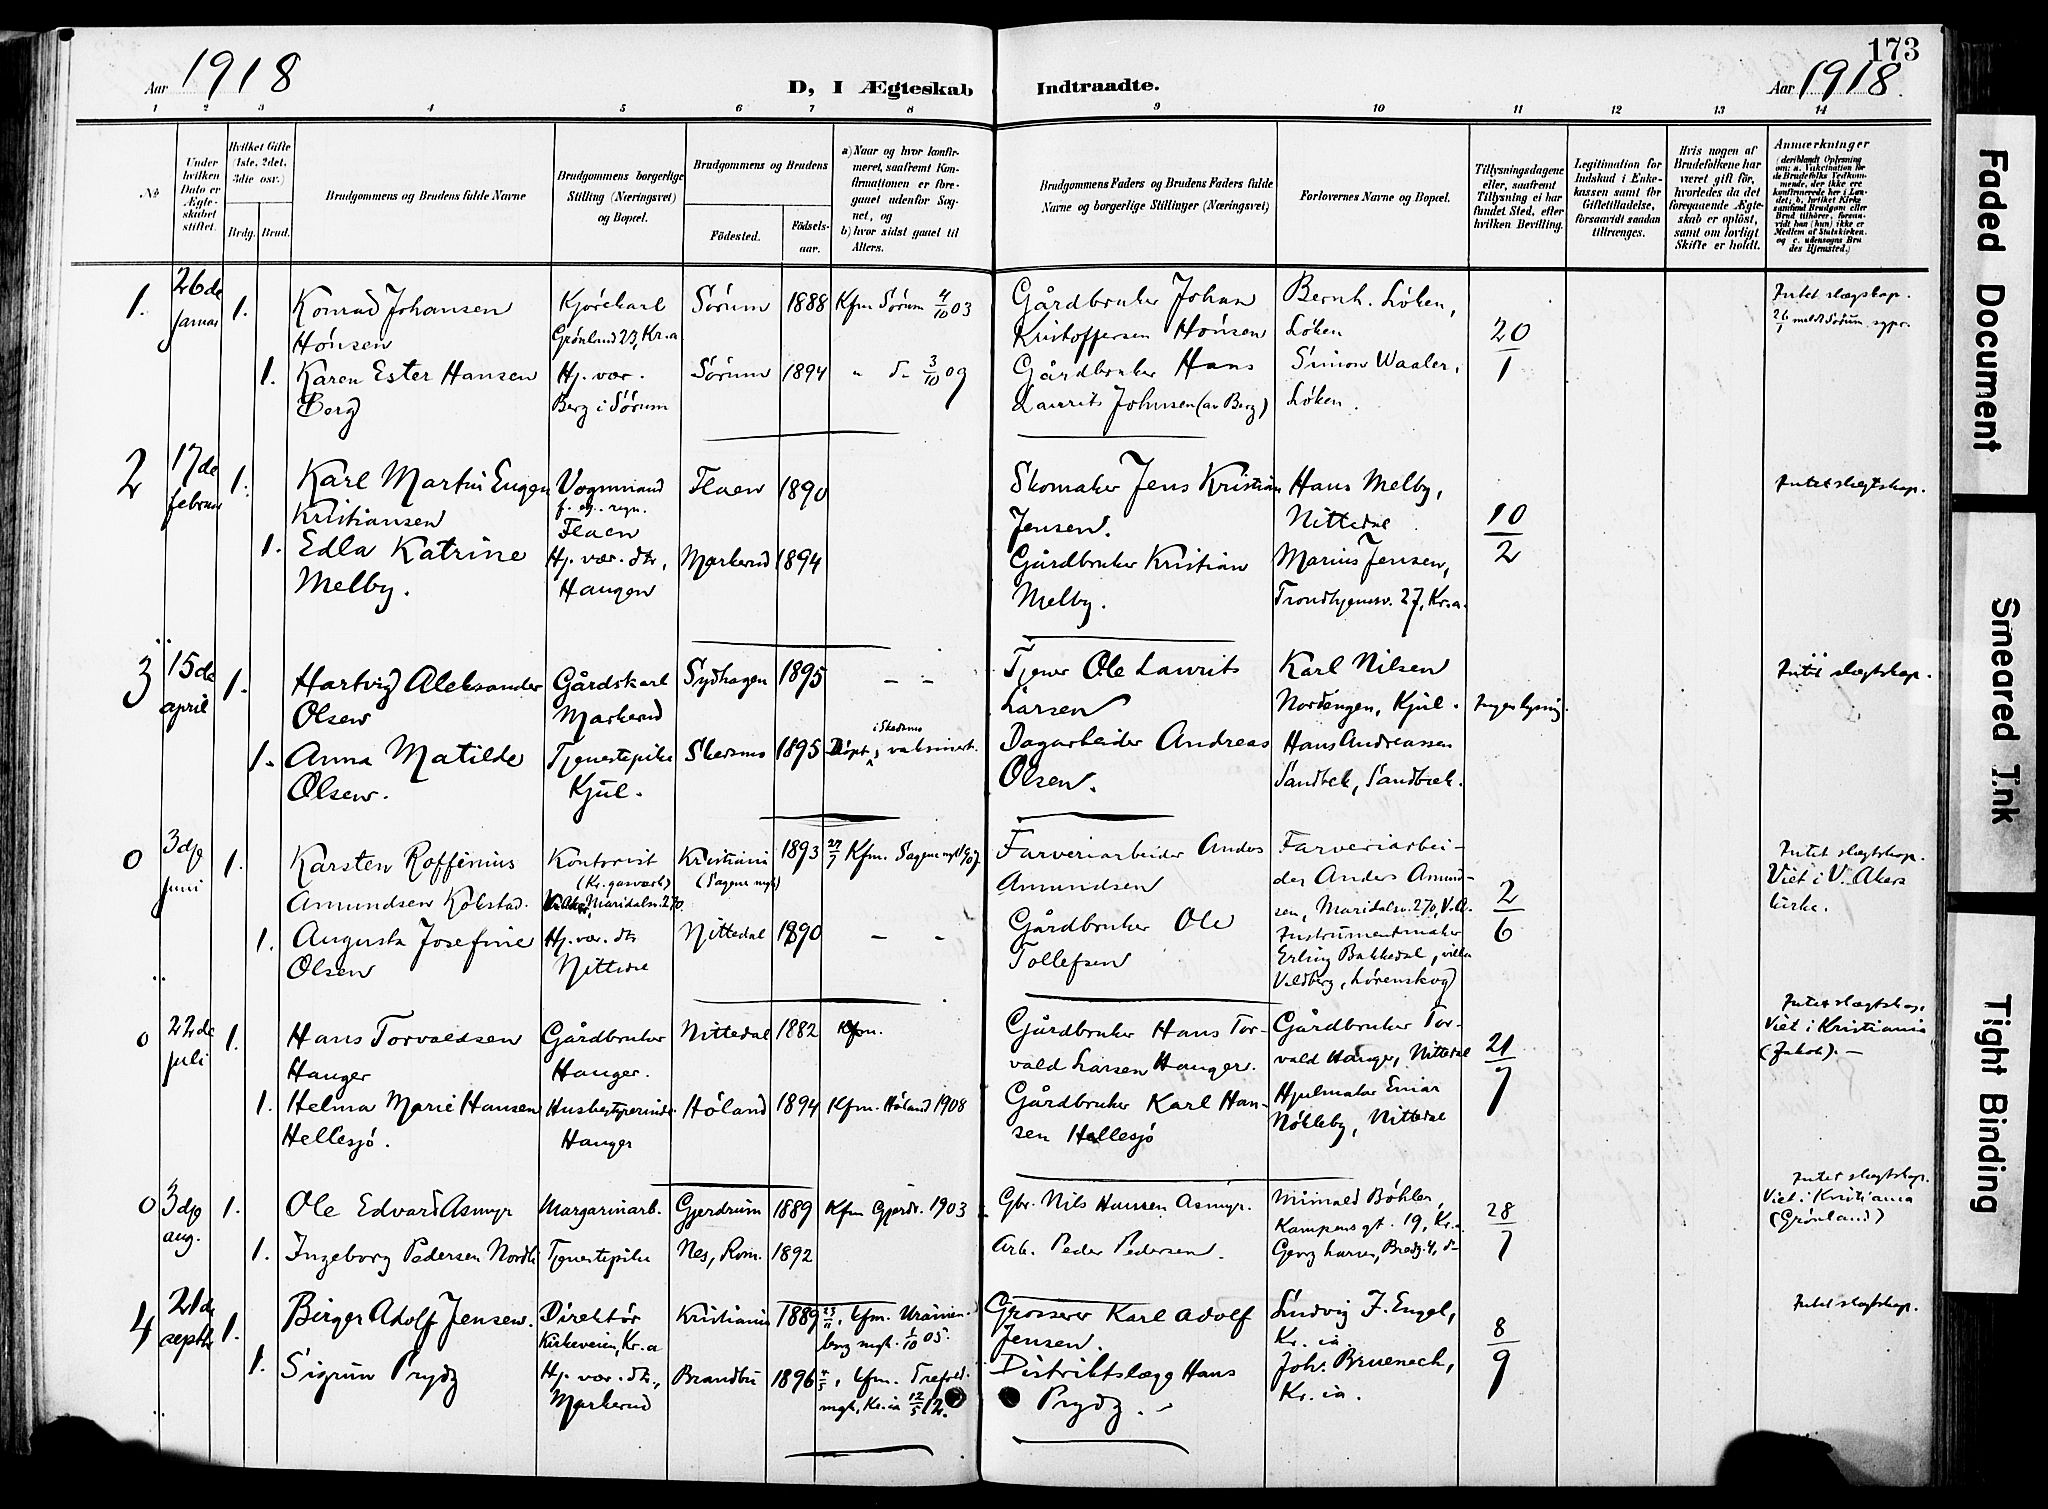 173
Aar 1918
D, I Ægteskab Indtraadte.
Aar 1918.
1 2 3 4 5 6 7 8 9 10 11 12 13 14
No
Under hvilken Dato er Ægteskabet stiftet.
Hvilket Gifte (1ste, 2det, 3die osv.)
Brdg. Brud.
Brudgommens og Brudens fulde Navne
Brudgommens borgerlige Stilling (Næringsvei) og Bopæl.
Brudgommens og Brudens
Fødested.
Fødselsaar.
a) Naar og hvor konfirmeret, saafremt Konfirmationen er foregaaet udenfor Sognet, og
b) hvor sidst gaaet til Alters.
Brudgommens Faders og Brudens Faders fulde Navne og borgerlige Stillinger (Næringsvei)
Forlovernes Navne og Bopæl.
Tillysningsdagene eller, saafremt Tillysning ei har fundet Sted, efter hvilken Bevilling.
Legitimation for Indskud i Enkekassen samt for Giftetilladelse, forsaavidt saadan tiltrænges.
Hvis nogen af Brudefolkene har været gift før, hvorledes da det foregaaende Ægteskab er opløst, samt om lovligt Skifte er holdt.
Anmærkninger
1. 26de januar 1. Konrad Johansen Kjørekarl Sørum 1888 Kfm Sørum 4/10 03 Gårdbruker Johan Bernh. Løken, 20/1 Intet slægskap.
Hønsen Grønland 23, Kr.a Kristoffersen Hønsen Løken 26/1 meldt Sørum
1. Karen Ester Hansen Hj. vær. Sørum 1894 " d- 3/10 09 Gårdbruker Hans Simon Waaler,
Berg Berg i Sørum Laurits Johnsen (av Berg) Løken.
2 17de februar 1. Karl Martin Eugen Vognmand Flaen 1890 Skomaker Jens Kristian Hans Melby, 10/2 Intet slægtskap.
Kristiansen f. eg. regn. Flaen Jensen. Nittedal
1. Edla Katrine Hj. vær. dtr, Markerud 1894 Gårdbruker Kristian Marius Jensen,
Melby. Haugen Melby. Trondhjemsv. 27, Kr.a.
3 15de april 1. Hartvig Aleksander Gårdskarl Sydhagen 1895 – – Tjener Ole Laurits Karl Nilsen Intet slægtskap.
Olsen Markerud Larsen Nordengen, Kjul. Ingen lysning.
1. Anna Matilde Tjenestepike Skedsmo 1895 Døpt i Skedsmo, vaksinert. Dagarbeider Andreas Hans Andreassen
Olsen. Kjul. Olsen. Sandbek, Sandbæk.
0 3dje juni 1. Karsten Roffinius Kontorist Kristiania 1893 27/7 Kfm. Sagene mgh 1907 Farveriarbeider Anders Farveriarbei- 2/6 Intet slægtskap.
Amundsen Kolstad. (Kr. gasværk) (Sagene mgh) Amundsen der Anders Amund- Viet i V. Akers
Maridalsv. 270. sen, Maridalsv. 270, V.A. kirke.
1. Augusta Josefine Hj. vær. dtr Nittedal 1890 – – Gårdbruker Ole Instrumentmaker
Olsen Nittedal Tollefsen Erling Bakkedal, villa
Valdberg, Lørenskog)
0 22de juli 1. Hans Torvaldsen Gårdbruker Nittedal 1882 Kfm. Gårdbruker Hans Tor- Gårdbruker Tor- 21/7 Intet slægtskap.
Hauger Hauger. vald Larsen Hauger. vald Hauger, Nittedal Viet i Kristiania
(Jakob). –
1. Helma Marie Hansen Husbestyrerinde Høland 1894 Kfm. Høland 1908 Gårdbruker Karl Han- Hjulmaker Einar
Hellesjø. Hauger sen Hellesjø Nøkleby, Nittedal
0 3dje aug. 1. Ole Edvard Asmyr Margarinarb. Gjerdrum 1889 Kfm Gjerdr. 1903 Gbr. Nils Hansen Asmyr. Bøhler, 28/7 Intet slægtskap.
Kampens gt. 19, Kr.a Viet i Kristiania
(Grønland)
1. Ingeborg Pedersen Nordli Tjenestepike Nes, Rom. 1892 Arb. Peder Pedersen. Georg Larsen, Bredg. 4, d-
4 21de septbr 1. Birger Adolf Jensen. Direktør Kristiania 1889 23/11, kfm. Uranien- Grosserer Karl Adolf Ludvig F. Engel, 8/9 Intet slægtskap.
Kirkeveien, Kr.a borg mgh. 1/10 05. Jensen. Kr. ia.
1. Sigrun Prydz Hj. vær. dtr., Brandbu 1896 4/5, kfm. Trefold. Distriktslæge Hans Joh. Bruenech,
Markerud mgh, Kr.ia 12/5 12. Prydz. – Kr. ia.
Faded Document
Smeared Ink
Tight Binding